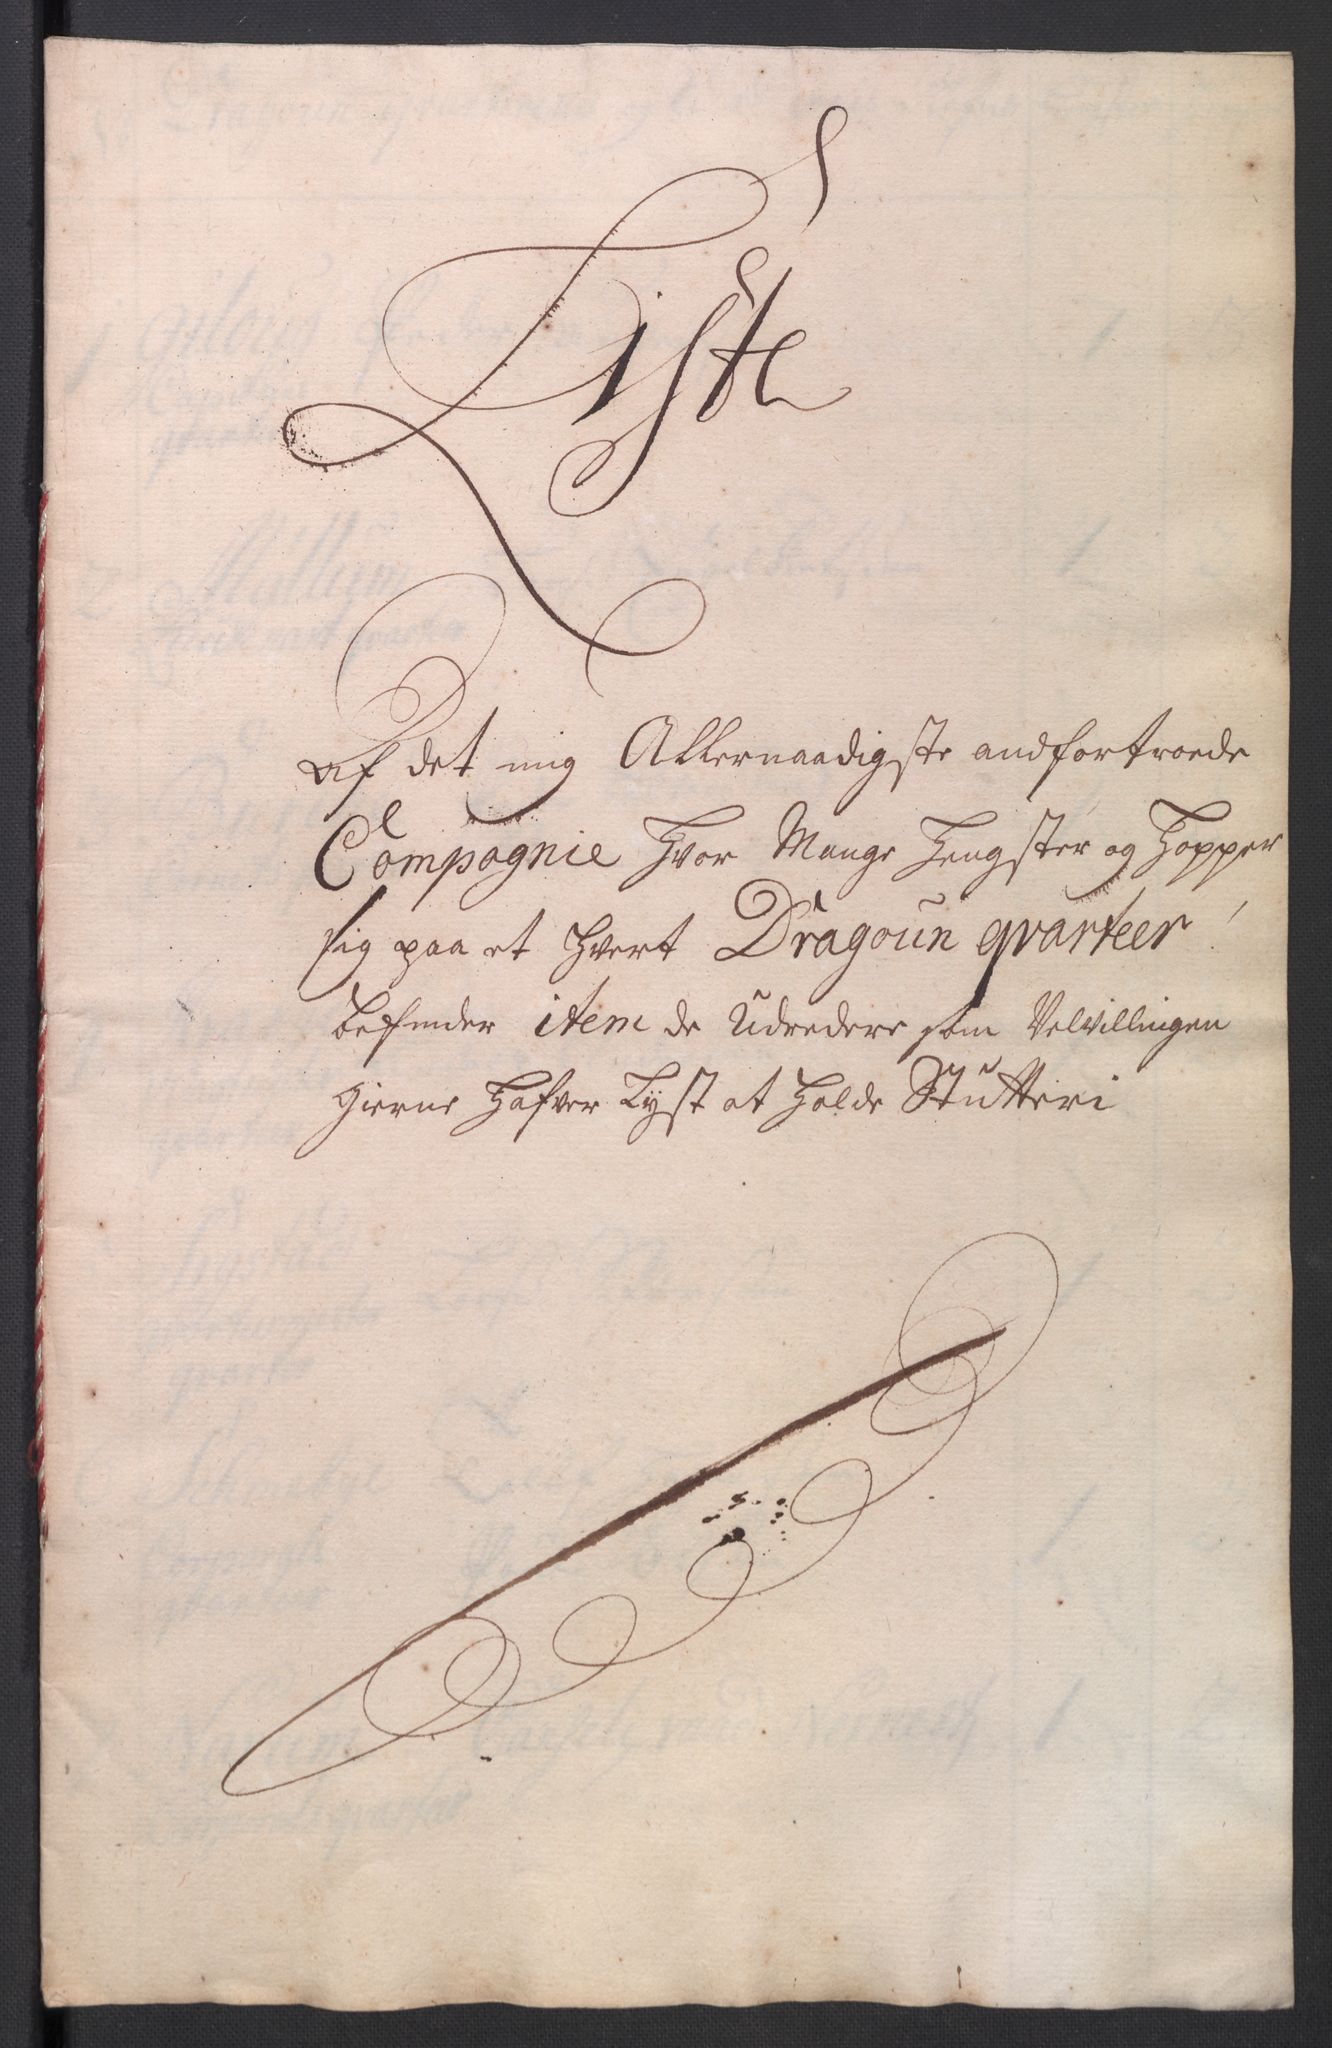 Liste
af det mig Allernaadigste andfortroede
Compagnie Hvor Mange Hengster og Hopper
sig paa et hvert Dragoun qvarteer
befinder item de Udredere som Velvillingen
gierne Hafver Lyst at Holde Stutteri